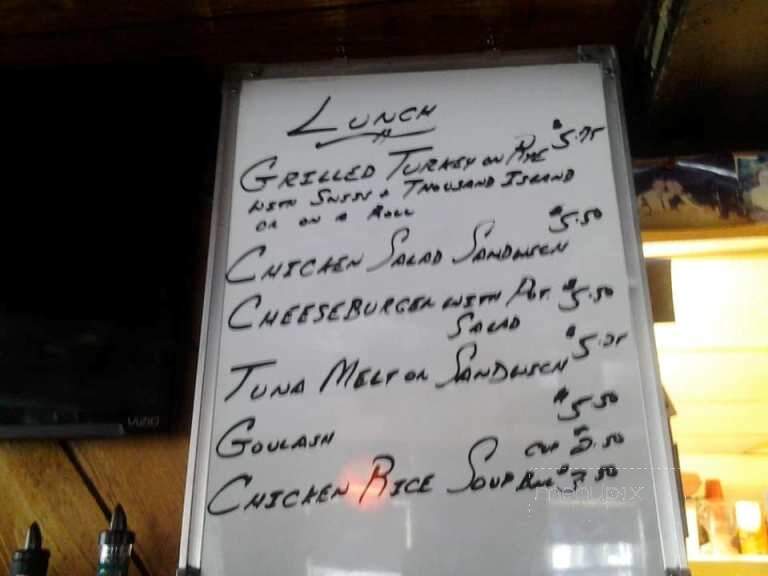 LUNCH
GRILLED TURKEY ON RYE $5.75
WITH SWISS & THOUSAND ISLAND
OR ON A ROLL
CHICKEN SALAD SANDWICH $5.50
CHEESEBURGER WITH POT. $5.50
SALAD
TUNA MELT OR SANDWICH
GOULASH $5.50
CUP $2.50
CHICKEN RICE SOUP $3.50
VIZIO
menupix